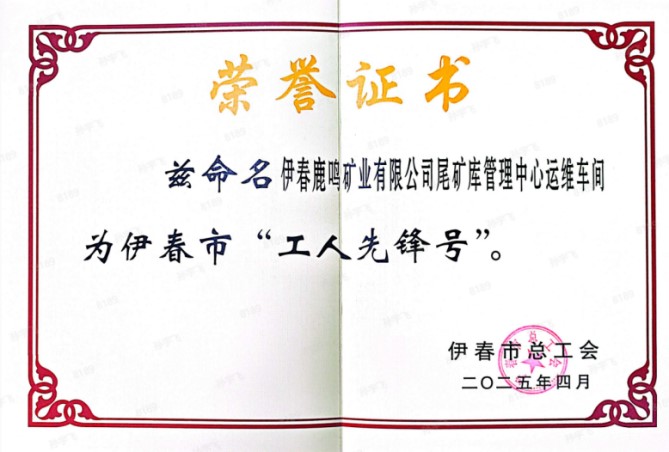 荣誉证书
兹命名伊春鹿鸣矿业有限公司尾矿库管理中心运维车间
为伊春市“工人先锋号”。
伊春市总工会
二〇二五年四月